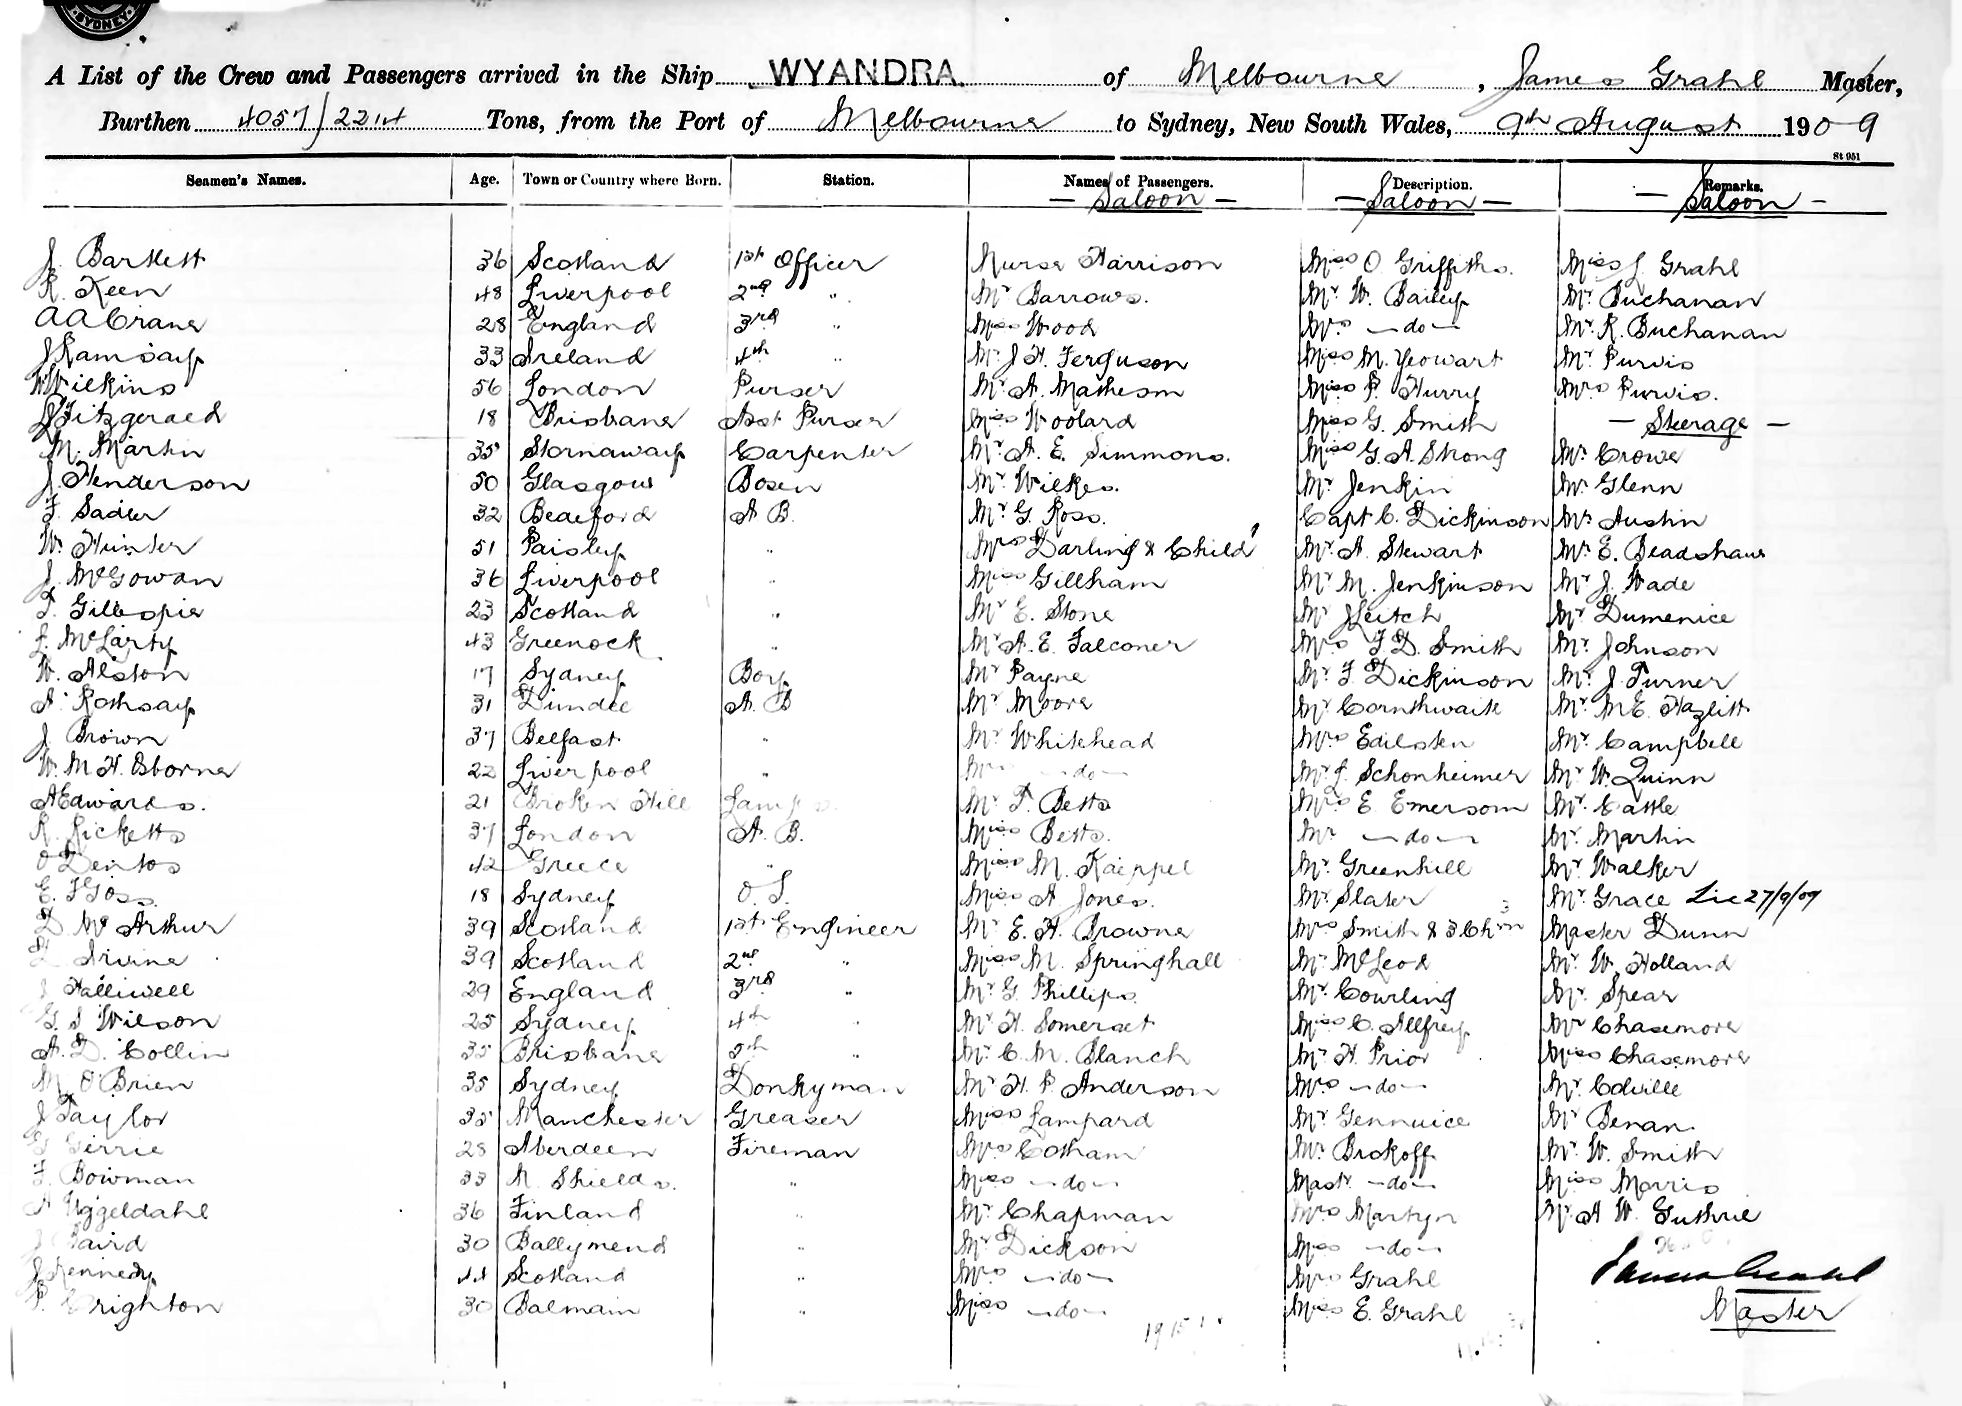 SYDNEY
A List of the Crew and Passengers arrived in the Ship WYANDRA of Melbourne, James Grahl Master,
Burthen 4057/2214 Tons, from the Port of Melbourne to Sydney, New South Wales, 9th August 1909
St 951
Seamen's Names. Age. Town or Country where Born. Station. Names of Passengers. Description. Remarks.
— Saloon — — Saloon — — Saloon —
J. Bartlett 36 Scotland 1st Officer Nurse Harrison Miss O. Griffiths. Miss J. Grahl
R. Keen 48 Liverpool 2nd " Mr Barrows. Mr W. Bailey Mr Buchanan
A A Crane 28 England 3rd " Miss Wood Mrs —do— Mr. R. Buchanan
J Ramsay 33 Ireland 4th " Mr J H. Ferguson Miss M. Yeowart Mr Purvis
W Wilkins 56 London Purser Mr A. Matheson Miss P. Hurry Mrs Purvis.
J Fitzgerald 18 Brisbane Asst Purser Miss Woolard Miss G. Smith — Steerage —
M. Martin 35 Stornaway Carpenter Mr A. E. Simmons. Miss G. A. Strong Mr Crowe
J. Henderson 50 Glasgow Bosen Mr Wilkes. Mr Jenkin Mr Glenn
F. Sadler 32 Bedeford A B. Mr G. Ross. Capt C. Dickinson Mr Austin
W. Hunter 51 Paisley " Mrs Darling & Child Mr A. Stewart Mr E. Beadshaw
J. McGowan 36 Liverpool " Miss Gillham Mr M. Jenkinson Mr J. Wade
T. Gillespie 23 Scotland " Mr E. Stone Mr J Leitch Mr Dumenice
L. McLarty 43 Greenock " Mr A. E. Falconer Mrs F. D. Smith Mr. Johnson
W. Alston 17 Sydney Boy Mr Payne Mr F. Dickinson Mr. J. Turner
A. Rothsay 31 Dundee A. B Mr Moore Mr Cornthwaite Mr. M E. Hazlitt
J Brown 37 Belfast " Mr Whitehead Mrs Edilsten Mr. Campbell
W. M H. Osborne 22 Liverpool " Mrs —do— Mr L. Schonheimer Mr W. Quinn
A Edwards. 21 Broken Hill Lamps. Mr T. Betts Mrs E. Emerson Mr. Cattle
R. Ricketts 37 London A. B. Miss Betts. Mr —do— Mr. Martin
O Dentos 42 Greece " Miss M. Kaeppel Mr. Greenhill Mr Walker
E. J Goss. 18 Sydney O. S. Miss A Jones. Mr Slater Mr. Grace Lic 27/9/09
D McArthur 39 Scotland 1st Engineer Mr E. H. Browne Mrs Smith & 3 Chrn 3 Master Dunn
Irvine 39 Scotland 2nd " Miss M. Springhall Mr McLeod Mr. W. Holland
J Halliwell 29 England 3rd " Mr G. Phillips. Mr. Courling Mr. Spear
G. S Wilson 25 Sydney 4th " Mr H. Somerset Miss C. Allfrey Mr Chasemore
A. D. Collin 35 Brisbane 5th " Mr. C. M. Blanch Mr H. Prior Miss Chasemore
M. O'Brien 35 Sydney Donkyman Mr H. P. Anderson Mrs —do— Mr. Colville
J Taylor 35 Manchester Greaser Miss Lampard Mr Gennuice Mr Benan.
G Gerrie 28 Aberdeen Fireman Mrs Cotham Mr. Brokoff Mr. W. Smith
F. Bowman 33 N. Shields. " Miss —do— Mast. —do— Miss Morris
A Uggeldahl 36 Finland " Mr. Chapman Mrs Martyn Mr. A W. Guthrie
J Baird 30 Ballymend " Mr Dickson Miss —do—
J Kennedy 44 Scotland " Mrs —do— Mrs Grahl James Grahl
P. Crighton 30 Balmain " Miss —do— Miss E. Grahl Master